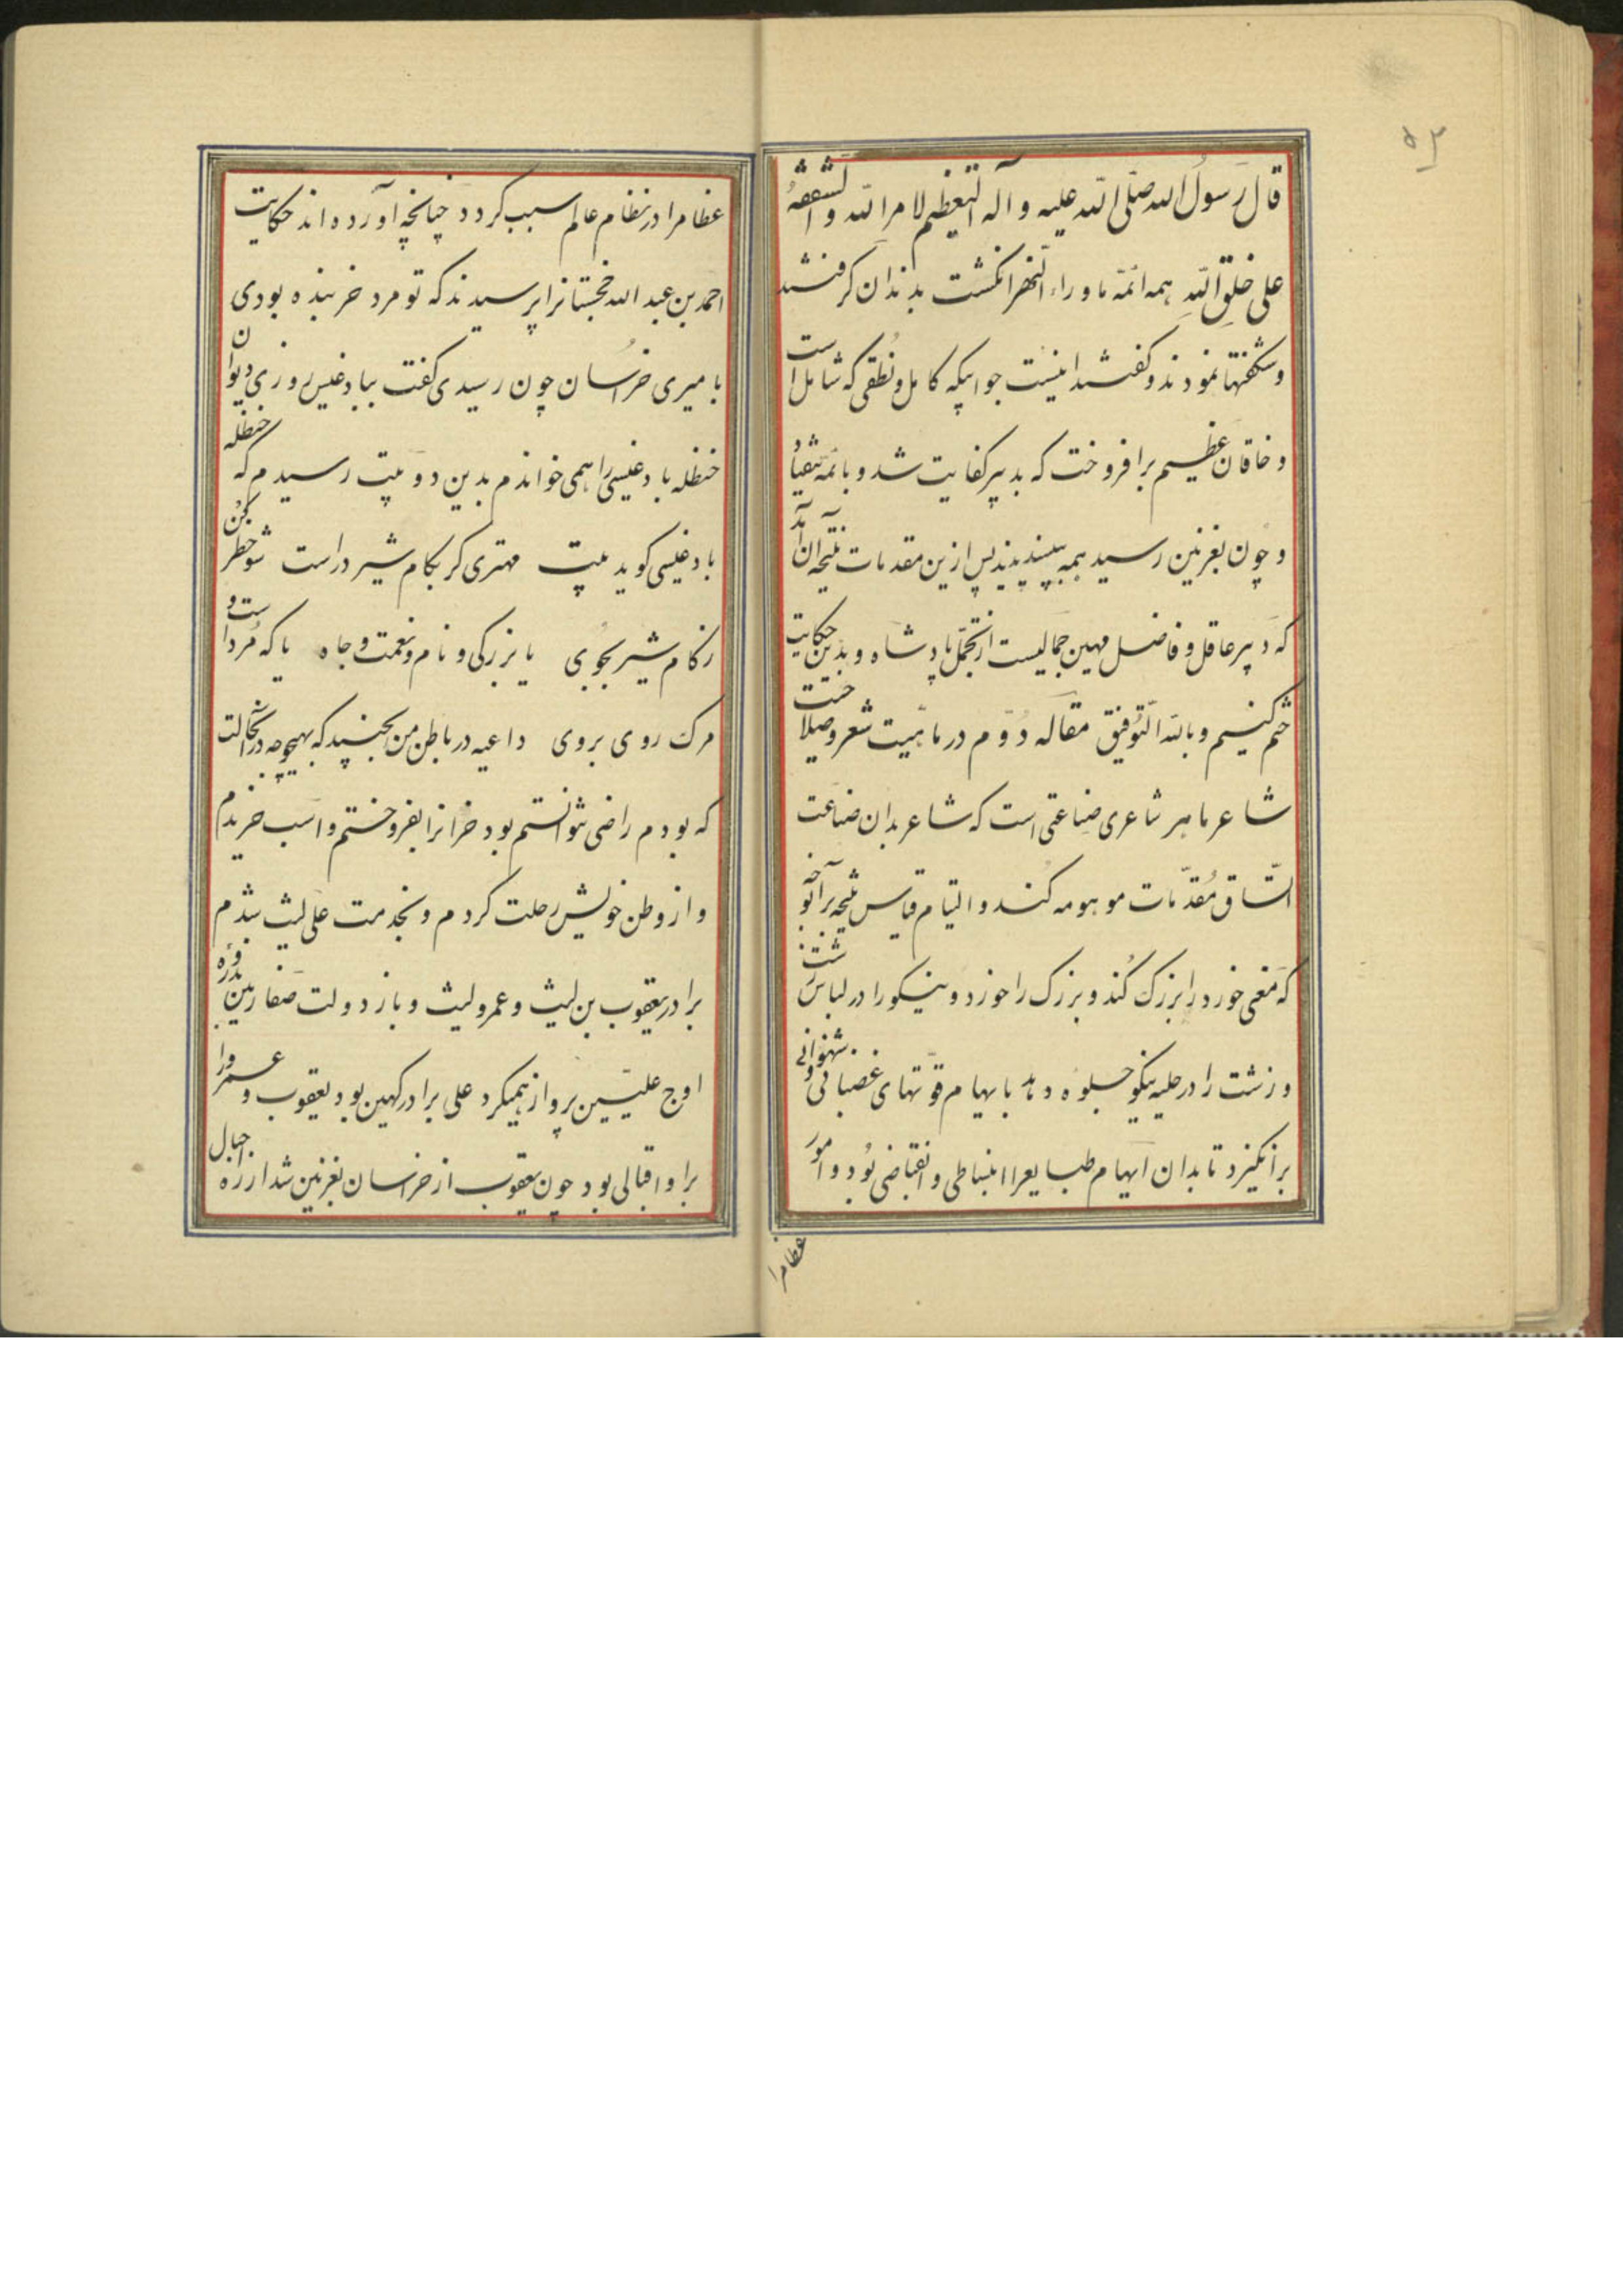 ۵۳
قال رسول الله صلّی الله علیه و آله التعظیم لامر الله و الشفقة
علی خلق الله همه ائمّه ماوراء النهر انگشت بدندان گرفتند
و شگفتیها نمودند و گفتند اینست جوابیکه کامل و نطقی که شامل است
و خاقان عظیم برافروخت که بدبیر کفایت شد و بائمه
و چون بغزنین رسید همه بپسندیدند پس ازین مقدمات نتیجه آن آمد
که دبیر عاقل و فاضل مهین جمالیست از تجمّل پادشاه و بدین حکایت
ختم کنیم و بالله التّوفیق مقاله دوّم در ماهیّت شعر و صلاحیت
شاعر ماهر شاعری صناعتی است که شاعر بدان صناعت
اتّساق مُقدّمات موهومه کند و التیام قیاس نتیجه بر آنوجه
که معنی خورد را بزرگ کُند و بزرگ را خورد و نیکو را در لباس زشت
و زشت را در حلیه نیکو جلوه دهد بایهام قوّتهای غضبانی و شهوانی
برانگیزد تا بدان ایهام طبایعرا انبساطی و انقباضی بُود و امور
عظامرا
عظامرا در نظام عالم سبب گردد چنانچه آورده اند حکایت
احمد بن عبدالله خجستانرا پرسیدند که تو مرد خربنده بودی
بامیری خراسان چون رسیدی گفت ببادغیس روزی دیوان
حنظله بادغیسی را همی خواندم بدین دو بیت رسیدم که حنظله
بادغیسی گوید بیت مهتری گر بکام شیر در است شو خطر کن
زکام شیر بجوی یا بزرگی و نام و نعمت و جاه یا که مُردا ست و
مرگ روی بروی داعیه در باطن من بجنبید که بهیچوجه درآنحالت
که بودم راضی نتوانستم بود خرانرا بفروختم و اسب خریدم
و از وطن خویش رحلت کردم و بخدمت علی لیث شدم
برادر یعقوب بن لیث و عمرو لیث و باز دولت صفاریین بذروه
اوج علیّین پرواز همیکرد علی برادر کهین بود یعقوب و عمرو را
براو اقبالی بود چون یعقوب از خراسان بغزنین شد از راه جبال